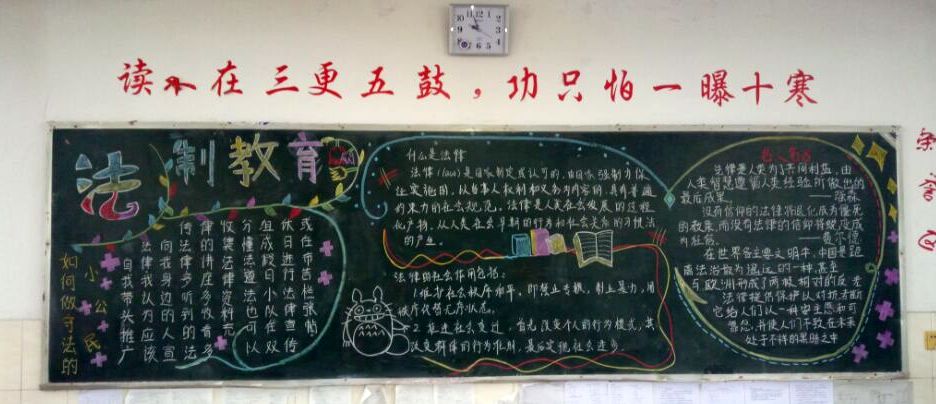 读在三更五鼓，功只怕一曝十寒
法制教育
什么是法律
法律(law)是国家制定或认可的，由国家强制力保
证实施的，以当事人权利和义务为内容的，具有普遍
约束力的社会规范。法律是人民社会发展的过程
化产物，从人民社会早期的行为和社会关系的习惯法
的产生。
法律的社会作用包括：
1.维护社会秩序和平，即禁止专横，制止暴力，用
秩序代替无序状态。
2.推进社会变迁，首先改变个人的行为模式，其
次变群体的行为准则，最后实现社会进步。
法律是人类为了共同利益，由
人类智慧遵循人类经验所做出的
最后成果。
没有信仰的法律将退化成为僵死
的教条，而没有法律的信仰将蜕变成
为狂信。
在世界各主要文明中，中国是距
离法治最为遥远的一种，甚至
与欧洲形成了两极相对的反差
法律提供保护以对抗专断
它给人们以一种安全感和可
靠感，并使人们不致在未来
处于不祥的黑暗之中
如何做守法的
小公民
自我带头推广
法律我认为应该
向我身边的人宣
传法律多听到的法
律的讲座多收看多
收装法律资料充
分懂道法也可以
组成假日小队在双
休日进行法律宣传
或在布告栏张帖